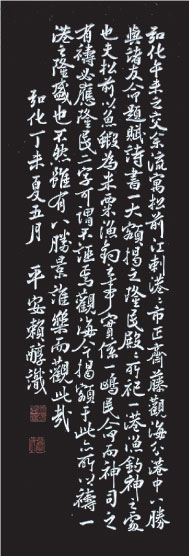 弘化午未之交余流寓松前江刺港市正齋藤觀海以港中八勝
與諸友分題賦詩書一大額揭之隆民殿殿所祀一港漁釣神之處
也夫松前以魚鰕為米粟漁釣之事實係一嶋民命而神司之
有禱必應隆民二字可謂不誣焉觀海今揭額于此亦所以禱一
港之隆盛也不然雖有八勝景誰樂而觀此哉
弘化丁未夏五月 平安賴醇識